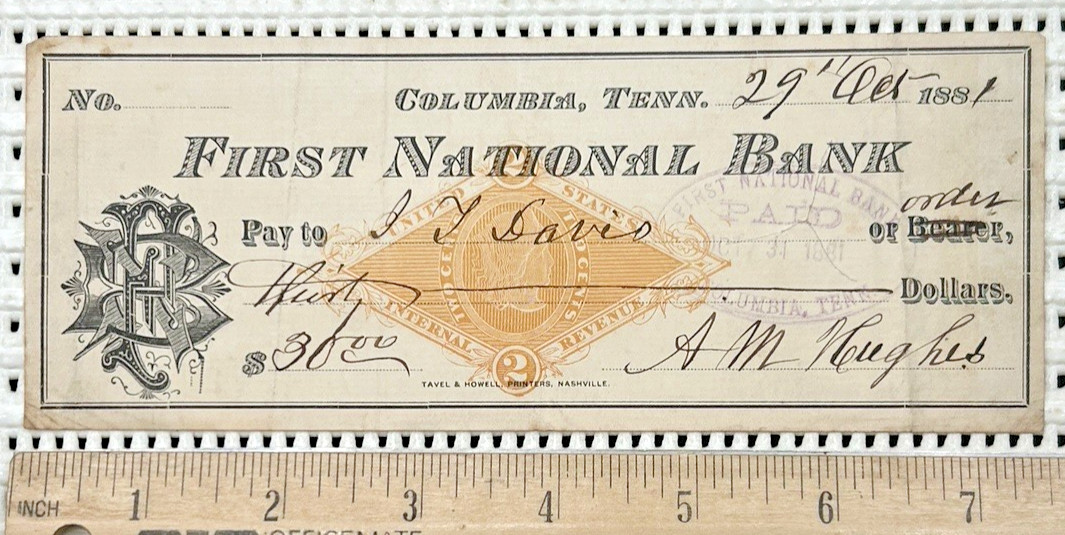 No. COLUMBIA, TENN. 29" Oct 1881
FIRST NATIONAL BANK
order
Pay to J T Davis or Bearer,
Thirty Dollars.
$ 30 00 A M Hughes
TAVEL & HOWELL, PRINTERS, NASHVILLE.
2
UNITED STATES
TWO CENTS
TWO CENTS
INTERNAL REVENUE
2
FIRST NATIONAL BANK
PAID
31 1881
COLUMBIA, TENN.
INCH 1 2 3 4 5 6 7
OFFICEMATE